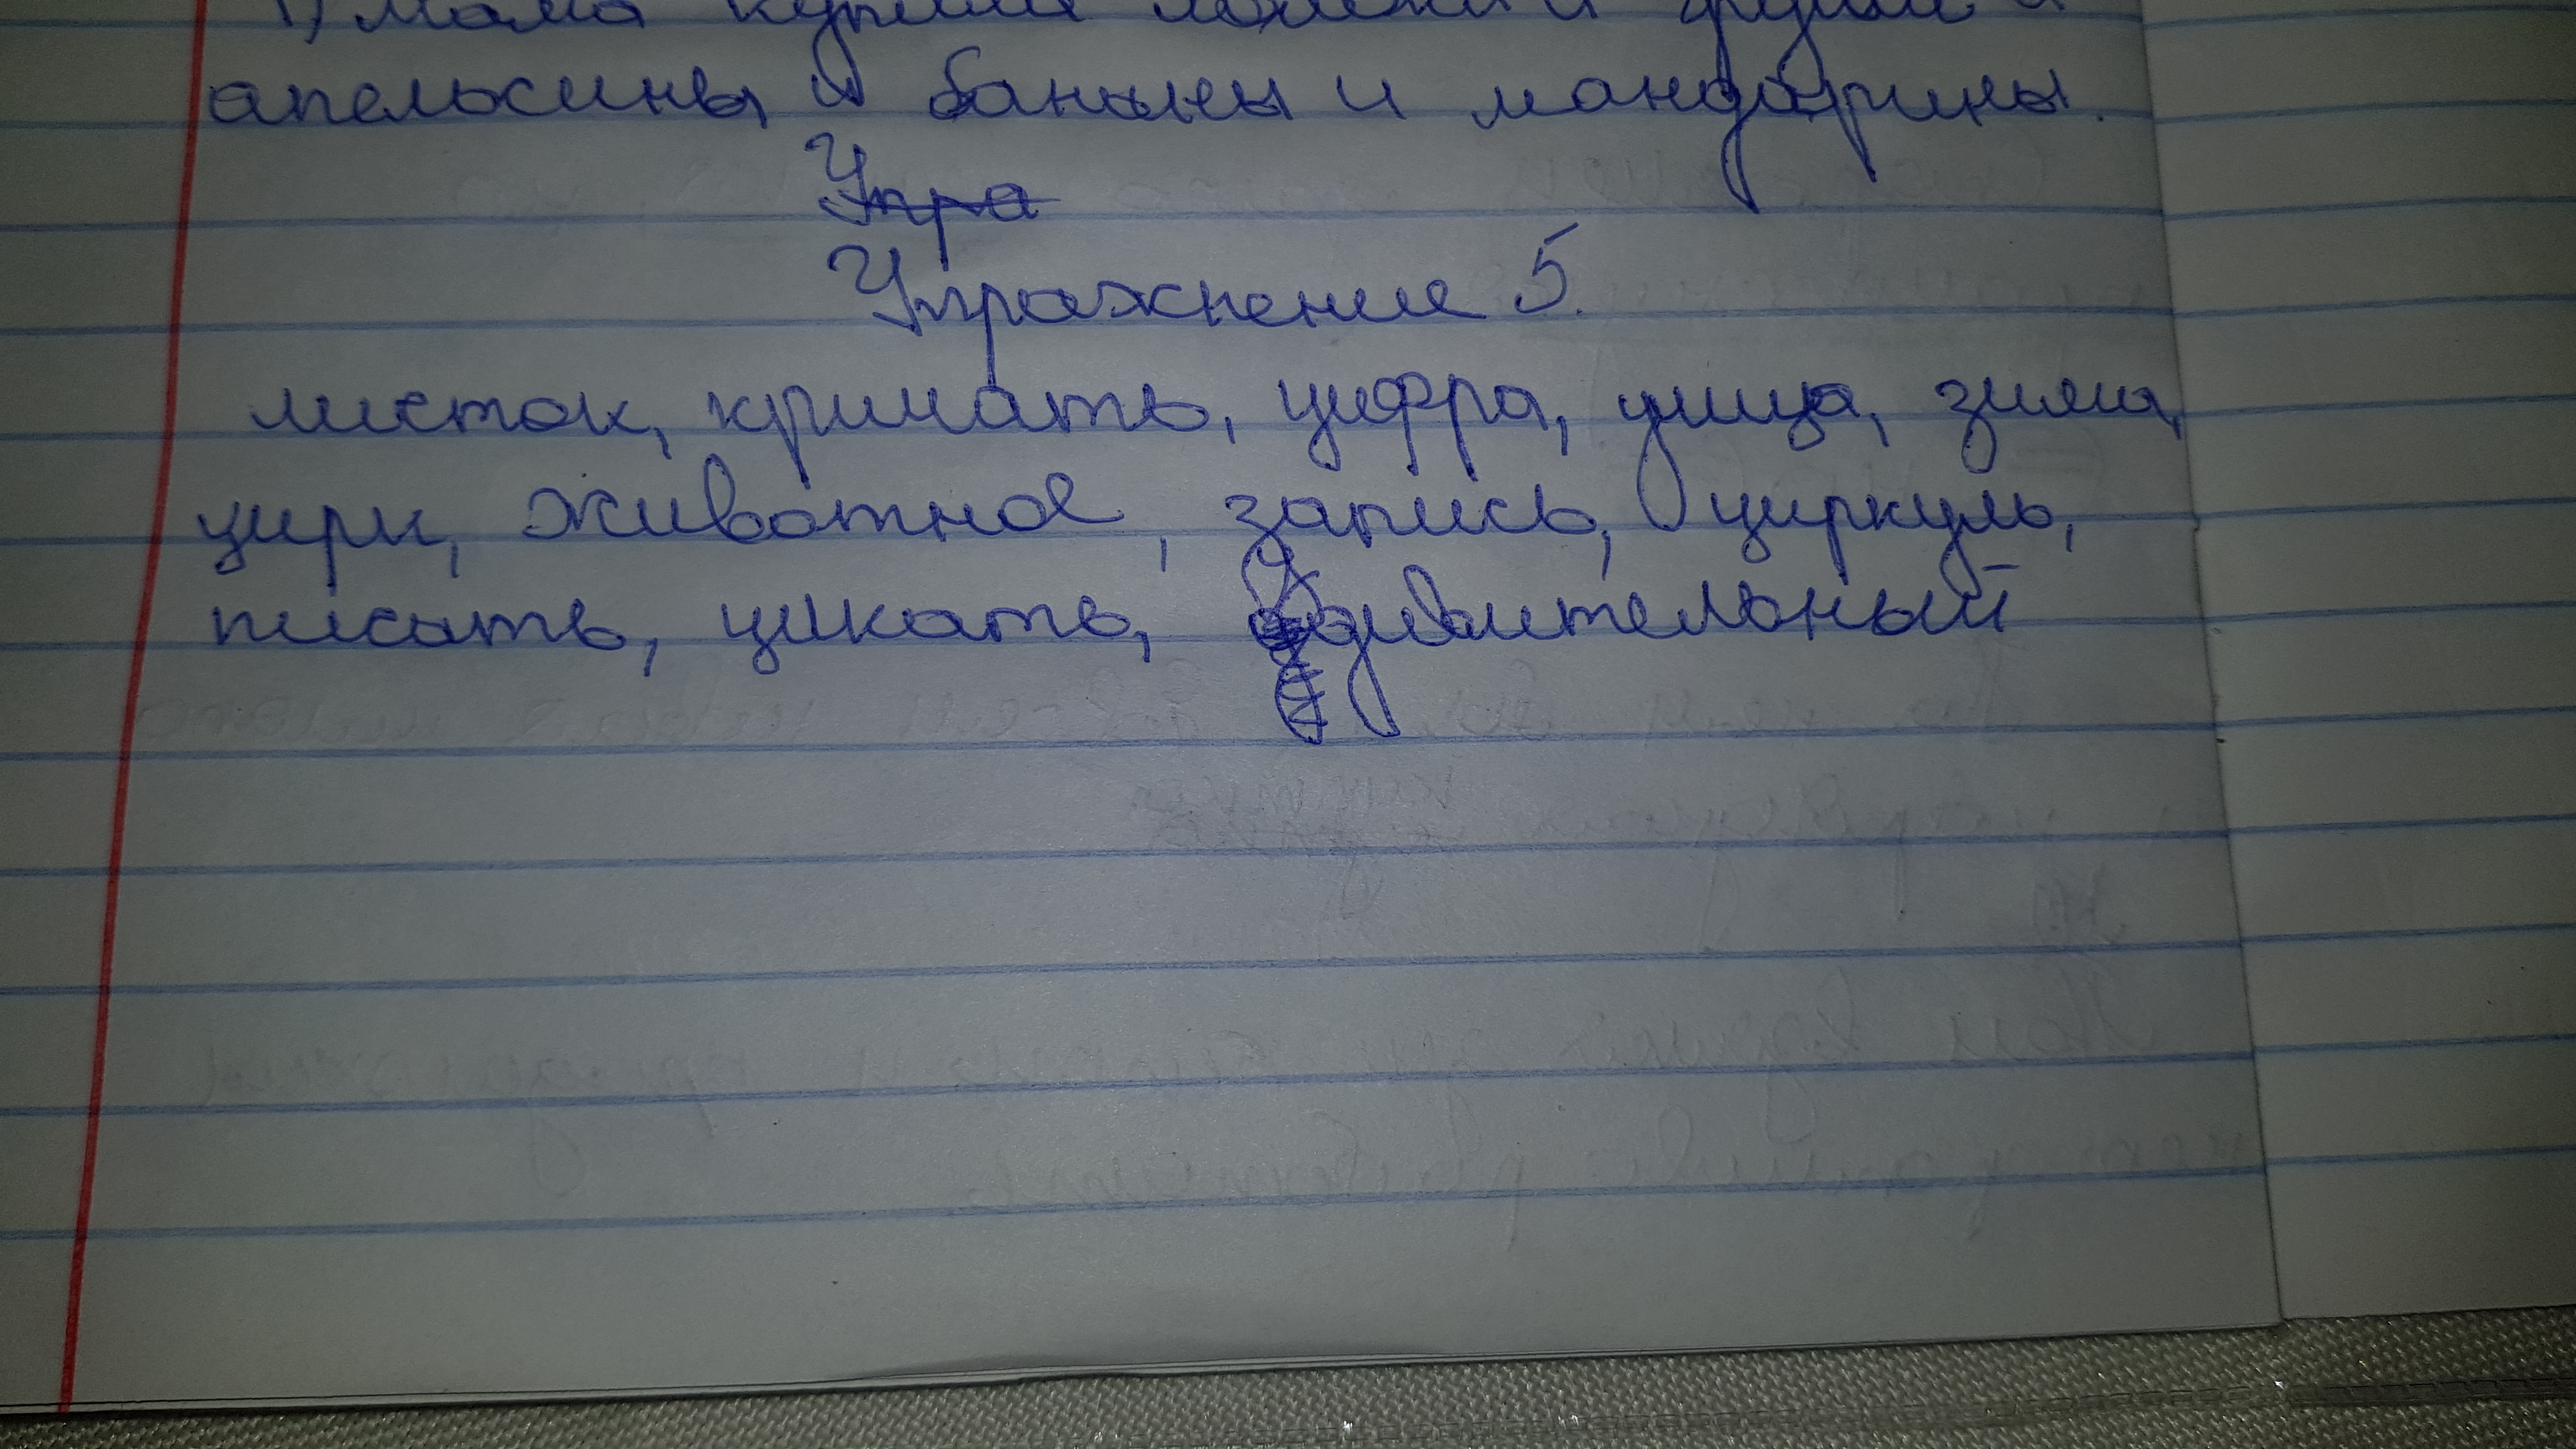 1) Мама купила
апельсины и бананы и мандарины.
Упра
Упражнение 5.
листок, кричать, цифра, улица, зима,
цирк, животное, запись, циркуль,
писать, цикать, удивительный